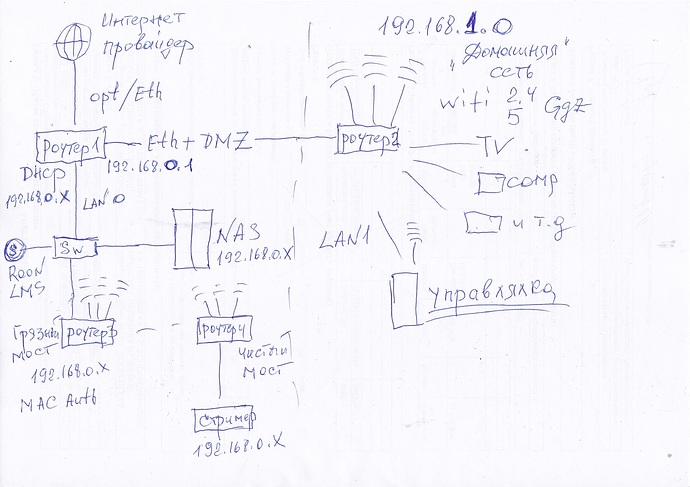 Интернет
провайдер
opt/Eth
роутер1
Eth + DMZ
192.168.0.1
DHCP
192.168.0.X
LAN 0
SW
S
ROON
LMS
NAS
192.168.0.X
Грязный
мост
роутер3
192.168.0.X
MAC Auth
роутер4
Чистый
мост
Стример
192.168.0.X
192.168.1.0
"Домашняя"
сеть
wifi 2.4
5 GgZ
роутер2
TV.
comp
и т.д
LAN1
управляхка